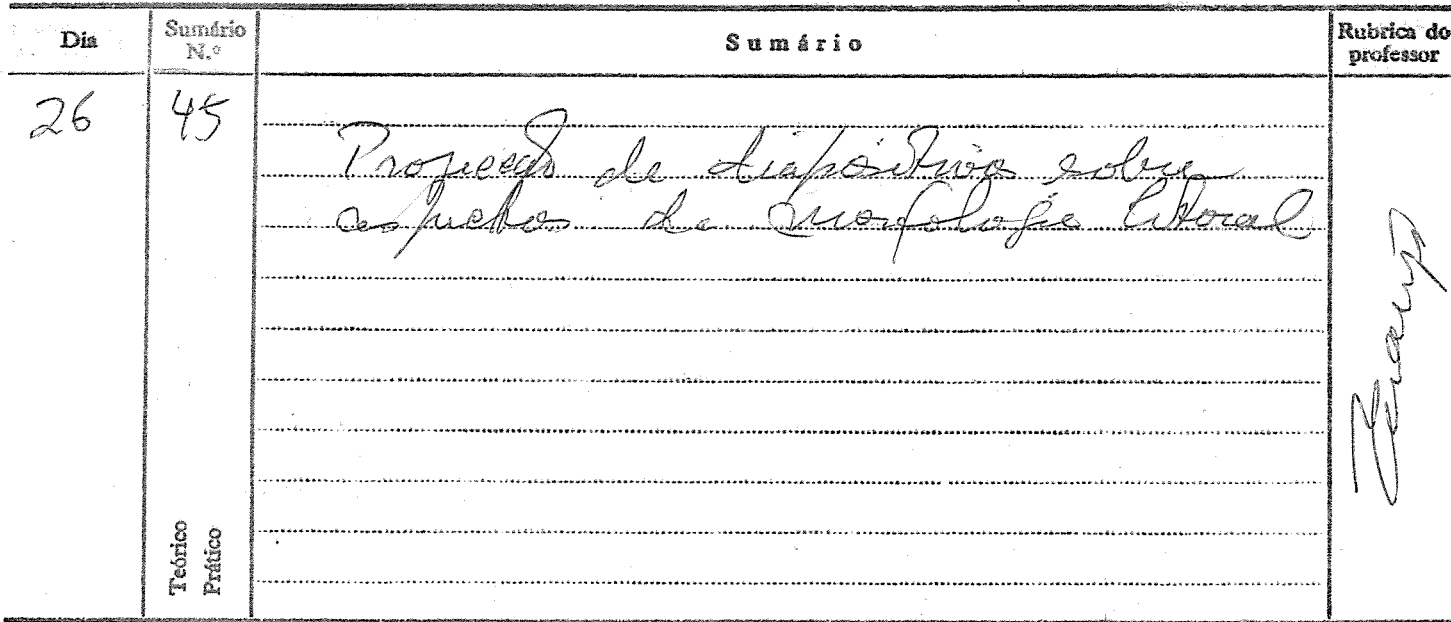 Dia
Sumário N.º
Sumário
Rubrica do professor
26
45
Projecção de diapositivos sobre
aspectos de morfologia litoral
Teórico
Prático